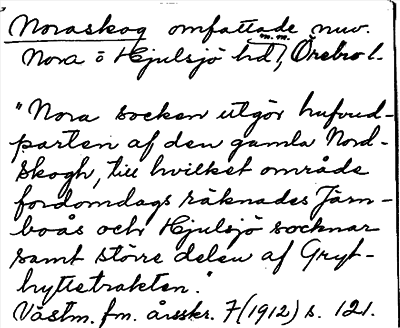 Noraskog omfattade nuv.
Nora o Hjulsjö hd m.m., Örebro l.
"Nora socken utgör hufvud-
parten af den gamla Nord-
skogh, till hvilket område
fordomdags räknades Järn-
boås och Hjulsjö socknar
samt större delen af Gryt-
hyttetrakten."
Västm. fm. årsskr. 7(1912) s. 121.